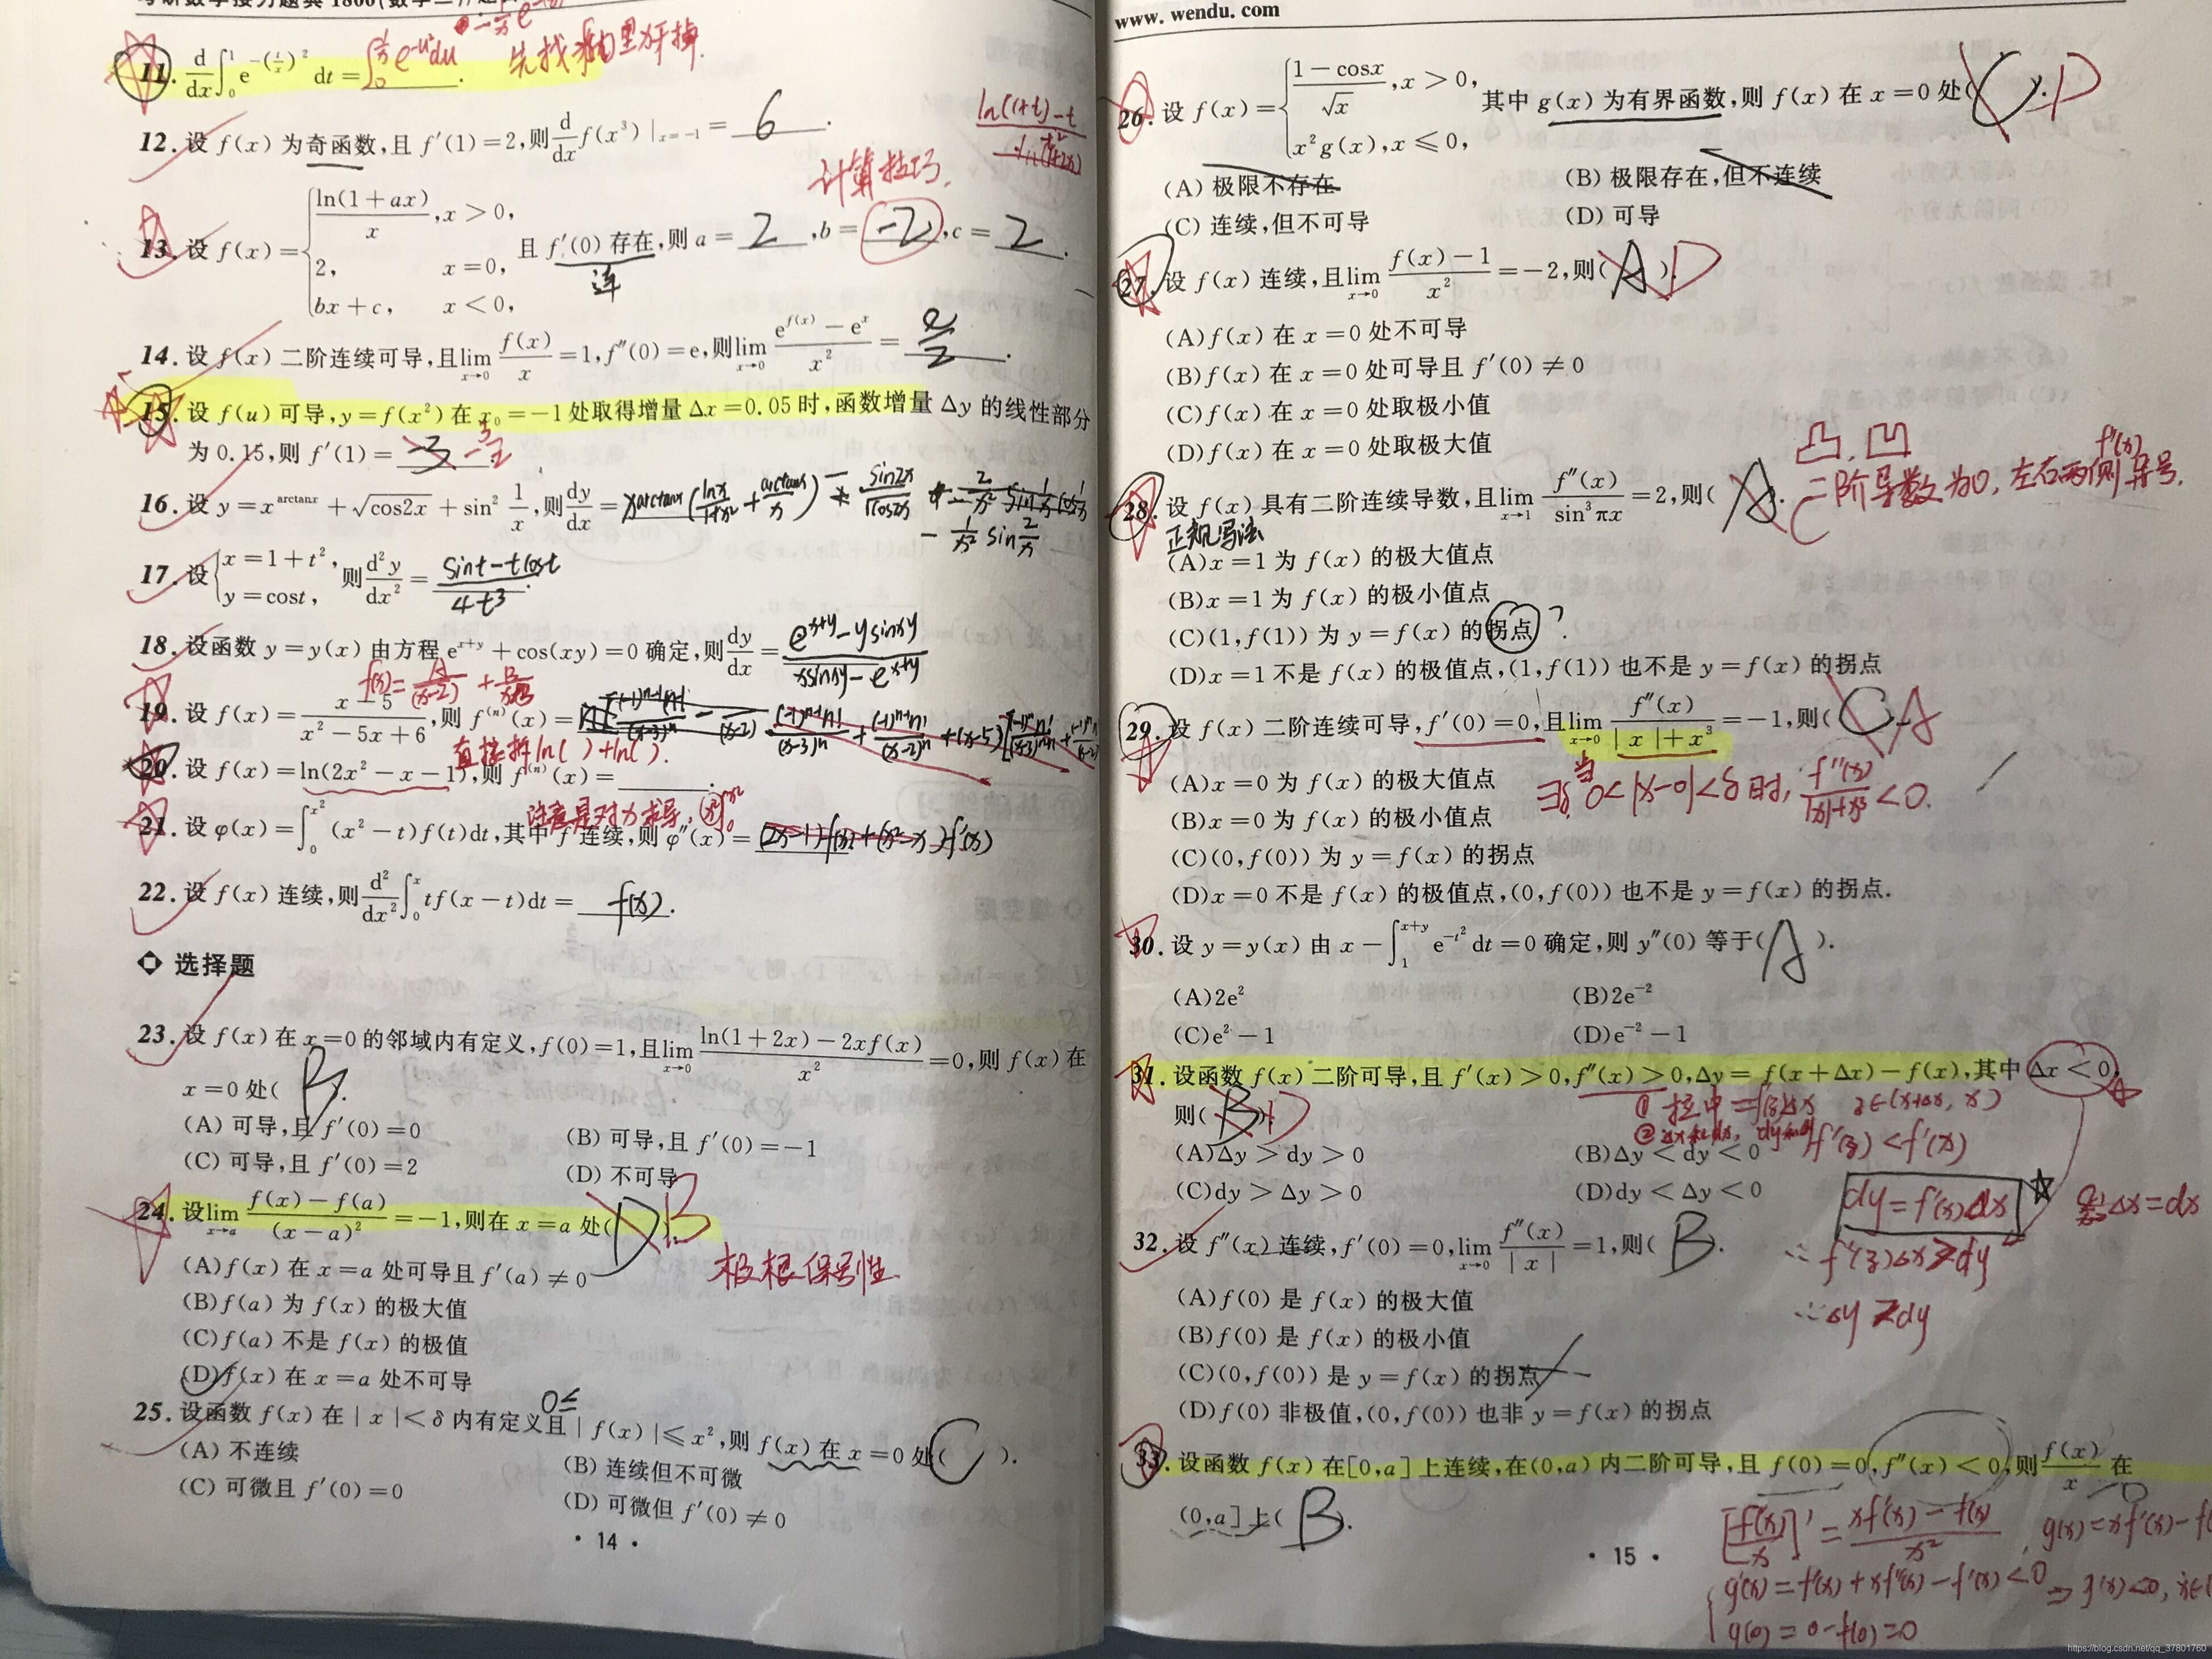 11. d/dx ∫₀¹ e^{-(t/x)²} dt = ∫₀^{1/x} e^{-u²}du .
12. 设 f(x) 为奇函数,且 f′(1)=2,则 d/dx f(x³)|ₓ₌₋₁ = 6 .
计算技巧.
13. 设 f(x)= { ln(1+ax)/x, x>0,
2, x=0,
bx+c, x<0,
且 f′(0) 存在,则 a= 2 ,b= -2 ,c= 2 .
连
14. 设 f(x) 二阶连续可导,且 lim_{x→0} f(x)/x =1, f″(0)=e,则 lim_{x→0} (e^{f(x)}-e^x)/x² = e/2 .
15. 设 f(u) 可导,y=f(x²) 在 x₀=-1 处取得增量 Δx=0.05 时,函数增量 Δy 的线性部分
为 0.15,则 f′(1)=
16. 设 y=x^{arctanx}+√cos2x+sin² 1/x,则 dy/dx = x^{arctanx}(lnx/(1+x²)+arctanx/x) - sin2x/√cos2x
- 1/x² sin 2/x
17. 设 { x=1+t²,
y=cost,
则 d²y/dx² = (sint-tcost)/4t³ .
18. 设函数 y=y(x) 由方程 e^{x+y}+cos(xy)=0 确定,则 dy/dx = (e^{x+y}-ysinxy)/(xsinxy-e^{x+y})
19. 设 f(x)= (x-5)/(x²-5x+6),则 f⁽ⁿ⁾(x)=
直接拆ln( )+ln( ).
20. 设 f(x)=ln(2x²-x-1),则 f⁽ⁿ⁾(x)= .
注意是对x求导,
21. 设 φ(x)=∫₀^{x²} (x²-t)f(t)dt,其中 f 连续,则 φ″(x)= (2x-1)f(x)+(x²-x)f′(x)
22. 设 f(x) 连续,则 d²/dx² ∫₀ˣ tf(x-t)dt = f(x) .
选择题
23. 设 f(x) 在 x=0 的邻域内有定义,f(0)=1,且 lim_{x→0} (ln(1+2x)-2xf(x))/x² =0,则 f(x) 在
x=0 处( B ).
(A) 可导,且 f′(0)=0 (B) 可导,且 f′(0)=-1
(C) 可导,且 f′(0)=2 (D) 不可导
24. 设 lim_{x→a} (f(x)-f(a))/(x-a)² =-1,则在 x=a 处( D ). B
(A) f(x) 在 x=a 处可导且 f′(a)≠0
极限保号性
(B) f(a) 为 f(x) 的极大值
(C) f(a) 不是 f(x) 的极值
(D) f(x) 在 x=a 处不可导
0≤
25. 设函数 f(x) 在 |x|<δ 内有定义且 |f(x)|≤x²,则 f(x) 在 x=0 处( C ).
(A) 不连续 (B) 连续但不可微
(C) 可微且 f′(0)=0 (D) 可微但 f′(0)≠0
· 14 ·
www.wendu.com
26. 设 f(x)= { (1-cosx)/√x, x>0,
x²g(x), x≤0,
其中 g(x) 为有界函数,则 f(x) 在 x=0 处( C ). D
(A) 极限不存在 (B) 极限存在,但不连续
(C) 连续,但不可导 (D) 可导
27. 设 f(x) 连续,且 lim_{x→0} (f(x)-1)/x² =-2,则( A ). D
(A) f(x) 在 x=0 处不可导
(B) f(x) 在 x=0 处可导且 f′(0)≠0
(C) f(x) 在 x=0 处取极小值
(D) f(x) 在 x=0 处取极大值
凸,凹
28. 设 f(x) 具有二阶连续导数,且 lim_{x→1} f″(x)/sin³πx =2,则( A ). C
二阶导数为0,左右两侧f″(x)异号.
正规写法
(A) x=1 为 f(x) 的极大值点
(B) x=1 为 f(x) 的极小值点
(C) (1,f(1)) 为 y=f(x) 的拐点 ?.
(D) x=1 不是 f(x) 的极值点,(1,f(1)) 也不是 y=f(x) 的拐点
29. 设 f(x) 二阶连续可导,f′(0)=0,且 lim_{x→0} f″(x)/(|x|+x³) =-1,则( C ). A
(A) x=0 为 f(x) 的极大值点
当 0<|x-0|<δ时, f″(x)/(|x|+x³)<0.
(B) x=0 为 f(x) 的极小值点
(C) (0,f(0)) 为 y=f(x) 的拐点
(D) x=0 不是 f(x) 的极值点,(0,f(0)) 也不是 y=f(x) 的拐点.
30. 设 y=y(x) 由 x-∫₁^{x+y} e^{-t²}dt=0 确定,则 y″(0) 等于( A ).
(A) 2e² (B) 2e⁻²
(C) e²-1 (D) e⁻²-1
31. 设函数 f(x) 二阶可导,且 f′(x)>0,f″(x)>0,Δy=f(x+Δx)-f(x),其中 Δx<0,
则( B ). D
① 拉中=f′(ξ)Δx ξ∈(x+Δx,x)
f′(ξ)<f′(x)
(A) Δy>dy>0 (B) Δy<dy<0
(C) dy>Δy>0 (D) dy<Δy<0
dy=f′(x)Δx
Δx=dx
∴f′(ξ)Δx>dy
∴Δy>dy
32. 设 f″(x) 连续,f′(0)=0,lim_{x→0} f″(x)/|x| =1,则( B ).
(A) f(0) 是 f(x) 的极大值
(B) f(0) 是 f(x) 的极小值
(C) (0,f(0)) 是 y=f(x) 的拐点
(D) f(0) 非极值,(0,f(0)) 也非 y=f(x) 的拐点
33. 设函数 f(x) 在[0,a]上连续,在(0,a) 内二阶可导,且 f(0)=0,f″(x)<0,则 f(x)/x 在
(0,a]上( B ).
[f(x)/x]′=(xf′(x)-f(x))/x² g(x)=xf′(x)-f(
g′(x)=f′(x)+xf″(x)-f′(x)<0 ⇒g(x)<0,x∈(
g(0)=0-f(0)=0
· 15 ·
https://blog.csdn.net/qq_37801760